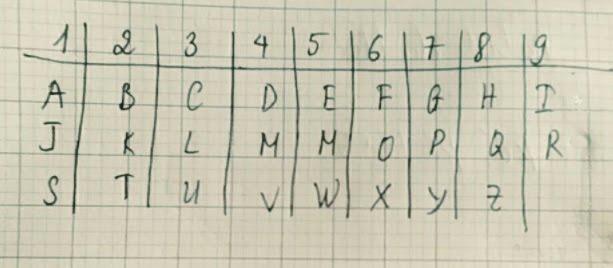 1 2 3 4 5 6 7 8 9
A B C D E F G H I
J K L M M O P Q R
S T U V W X Y Z